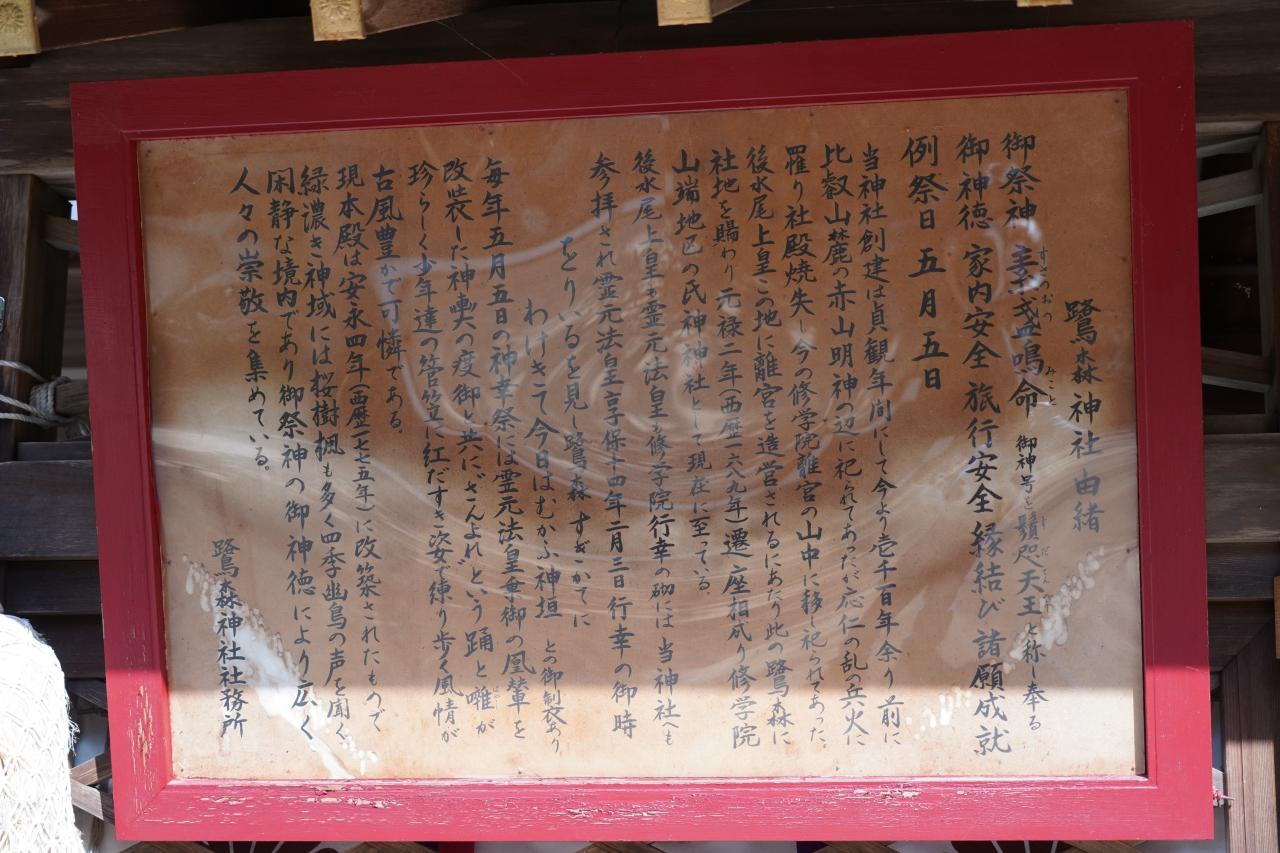 鷺森神社由緒
御祭神 素盞鳴命 御神号を鬚咫天王と称し奉る
御神徳 家内安全 旅行安全 縁結び 諸願成就
例祭日 五月五日
当神社創建は貞観年間にして今より壱千百年余り前に
比叡山麓の赤山明神の辺に祀られてあったが応仁の乱の兵火に
罹り社殿焼失し今の修学院離宮の山中に移し祀られてあった、
後水尾上皇この地に離宮を造営されるにあたり此の鷺森に
社地を賜わり元禄二年(西歴一六八九年)遷座相成り修学院
山端地区の氏神神社として現在に至っている
後水尾上皇や霊元法皇も修学院行幸の砌には当神社へも
参拝され霊元法皇享保十四年二月三日行幸の御時
をりゐるを見し鷺森すぎかてに
わけきて今日はむかふ神垣 との御制衣あり
毎年五月五日の神幸祭には霊元法皇乗御の鳳輦を
改装した神輿の渡御と共にさんよれという踊と囃が
珍らしく少年達の菅笠に紅だすき姿で練り歩く風情が
古風豊かで可憐である。
現本殿は安永四年(西歴一七七五年)に改築されたもので
緑濃き神域には桜樹楓も多く四季幽鳥の声を聞く
閑静な境内であり御祭神の御神徳により広く
人々の崇敬を集めている。
鷺森神社社務所